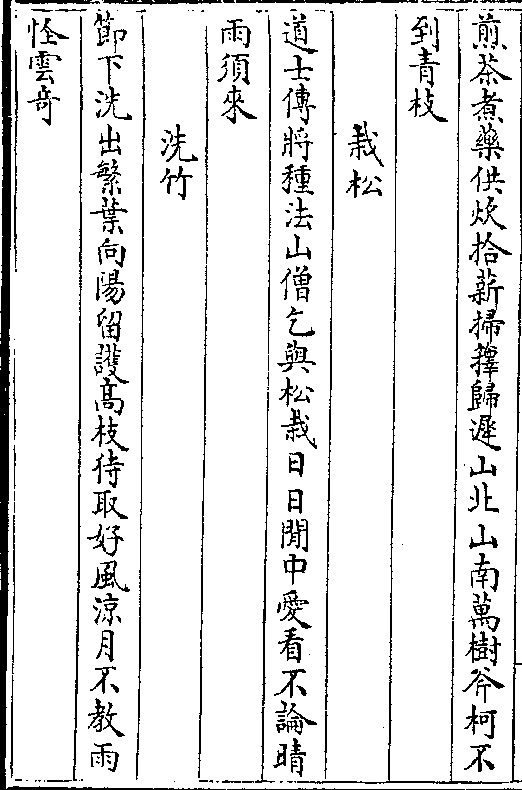 煎茶煮藥供炊拾薪掃籜歸遲山北山南萬樹斧柯不
到青枝
栽松
道士傳將種法山僧乞與松栽日日閒中愛看不論晴
雨須來
洗竹
節下洗出繁葉向陽留護髙枝待取好風涼月不教雨
怪雲奇